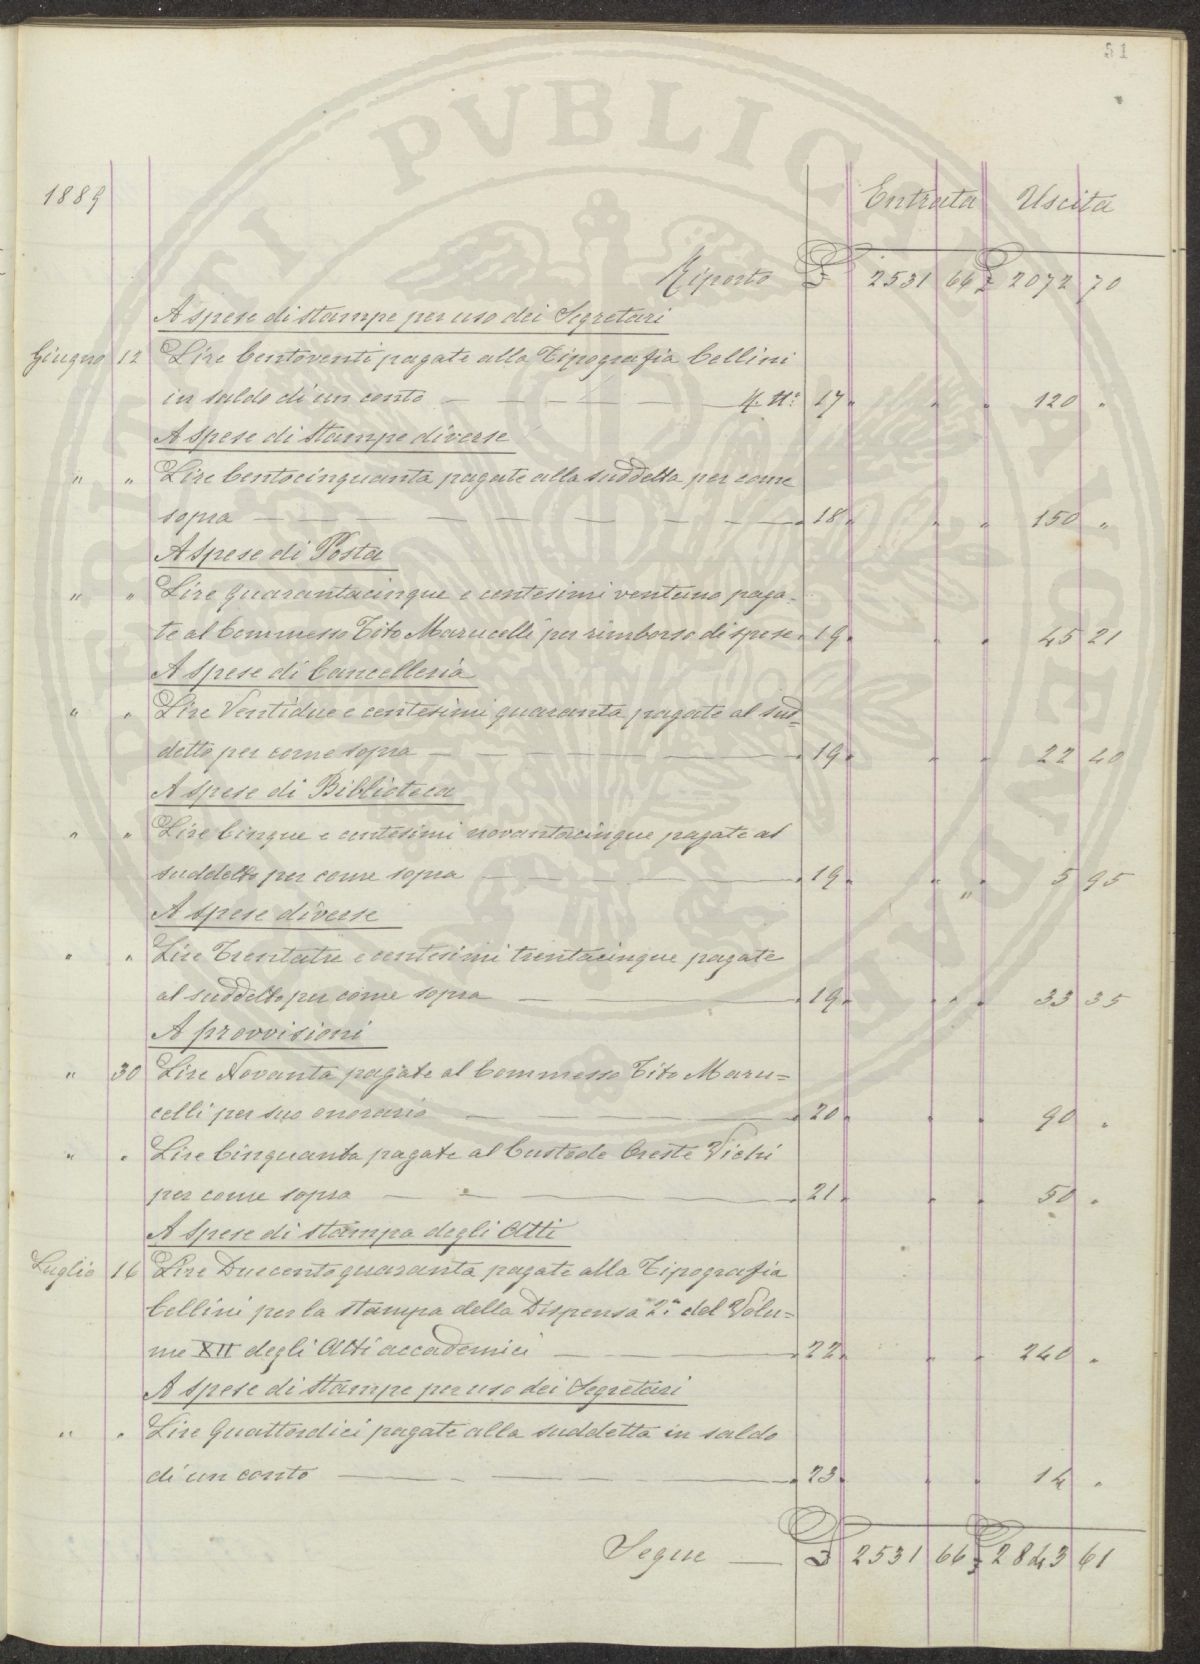 51
1889 Entrata Uscita
Riporto £ 2531 66 £ 2072 70
A spese di stampe per uso dei Segretari
Giugno 12 Lire Centoventi pagate alla Tipografia Cellini
in saldo di un conto — M. N.° 17 " " " 120 "
A spese di stampe diverse
" " Lire Centocinquanta pagate alla suddetta per come
sopra — " 18 " " " 150 "
A spese di Posta
" " Lire Quarantacinque e centesimi ventuno paga-
te al Commesso Tito Marucelli per rimborso di spese " 19 " " " 45 21
A spese di Cancelleria
" " Lire Ventidue e centesimi quaranta pagate al sud=
detto per come sopra — " 19 " " " 22 40
A spese di Biblioteca
" " Lire Cinque e centesimi novantacinque pagate al
suddetto per come sopra — " 19 " " " 5 95
A spese diverse
" " Lire Trentatre e centesimi trentacinque pagate
al suddetto per come sopra — " 19 " " " 33 35
A provvisioni
" 30 Lire Novanta pagate al Commesso Tito Maru=
celli per suo onorario — " 20 " " " 90 "
" " Lire Cinquanta pagate al Custode Oreste Vichi
per come sopra — " 21 " " " 50 "
A spese di stampa degli Atti
Luglio 16 Lire Duecentoquaranta pagate alla Tipografia
Cellini per la stampa della Dispensa 2.a del Volu=
me XII degli Atti accademici — " 22 " " " 240 "
A spese di stampe per uso dei Segretari
" " Lire Quattordici pagate alla suddetta in saldo
di un conto — " 23 " " " 14 "
Segue — £ 2531 66 £ 2843 61